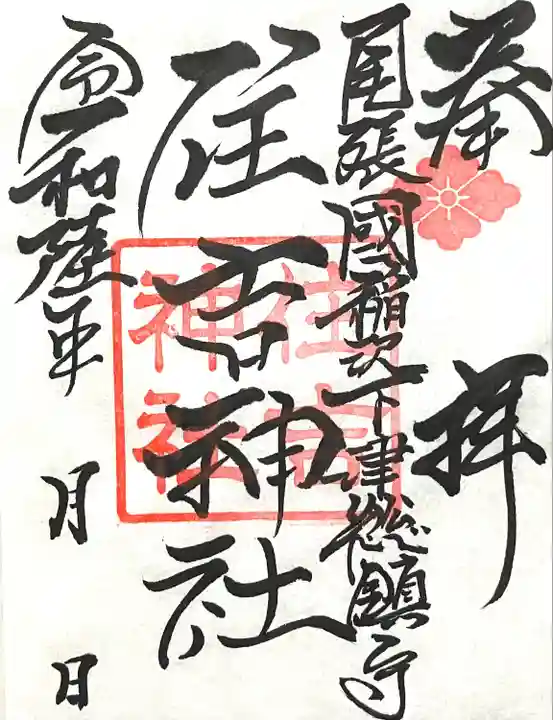 奉拝
尾張國稲沢下津総鎮守
住吉神社
住吉神社
令和陸年
月 日